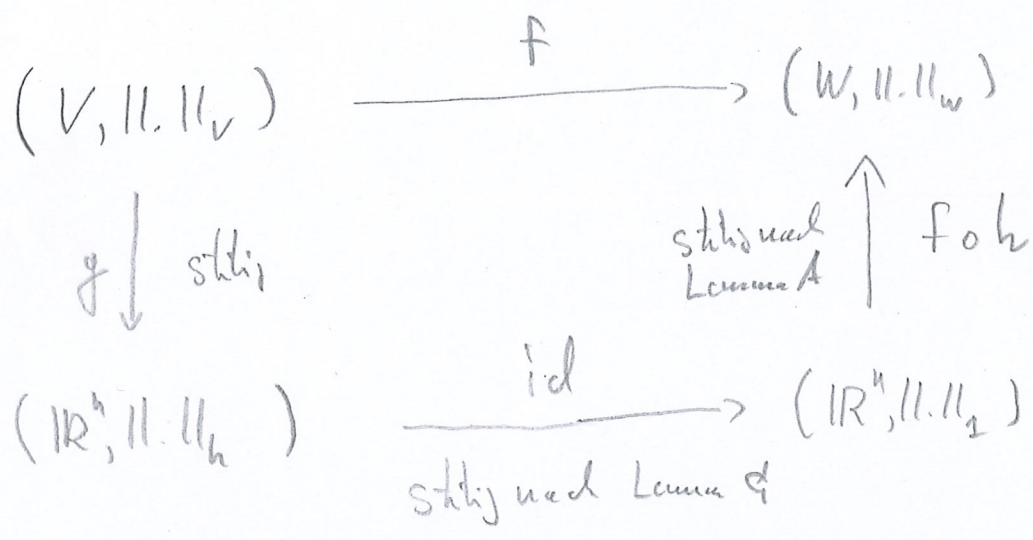 f
(V, ||.||_V) → (W, ||.||_W)
g ↓ stetig
stetig nach
Lemma A
↑ f ∘ h
id
(ℝⁿ, ||.||_h) → (ℝⁿ, ||.||_1)
stetig nach Lemma